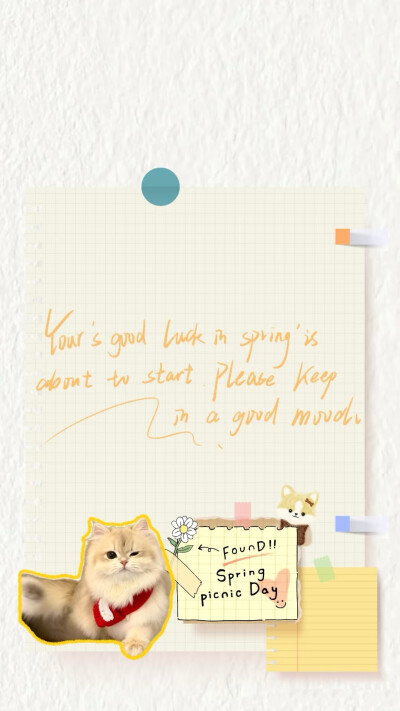 Your's good luck in spring's is
about to start please keep
in a good mood.
Found!!
Spring
picnic Day